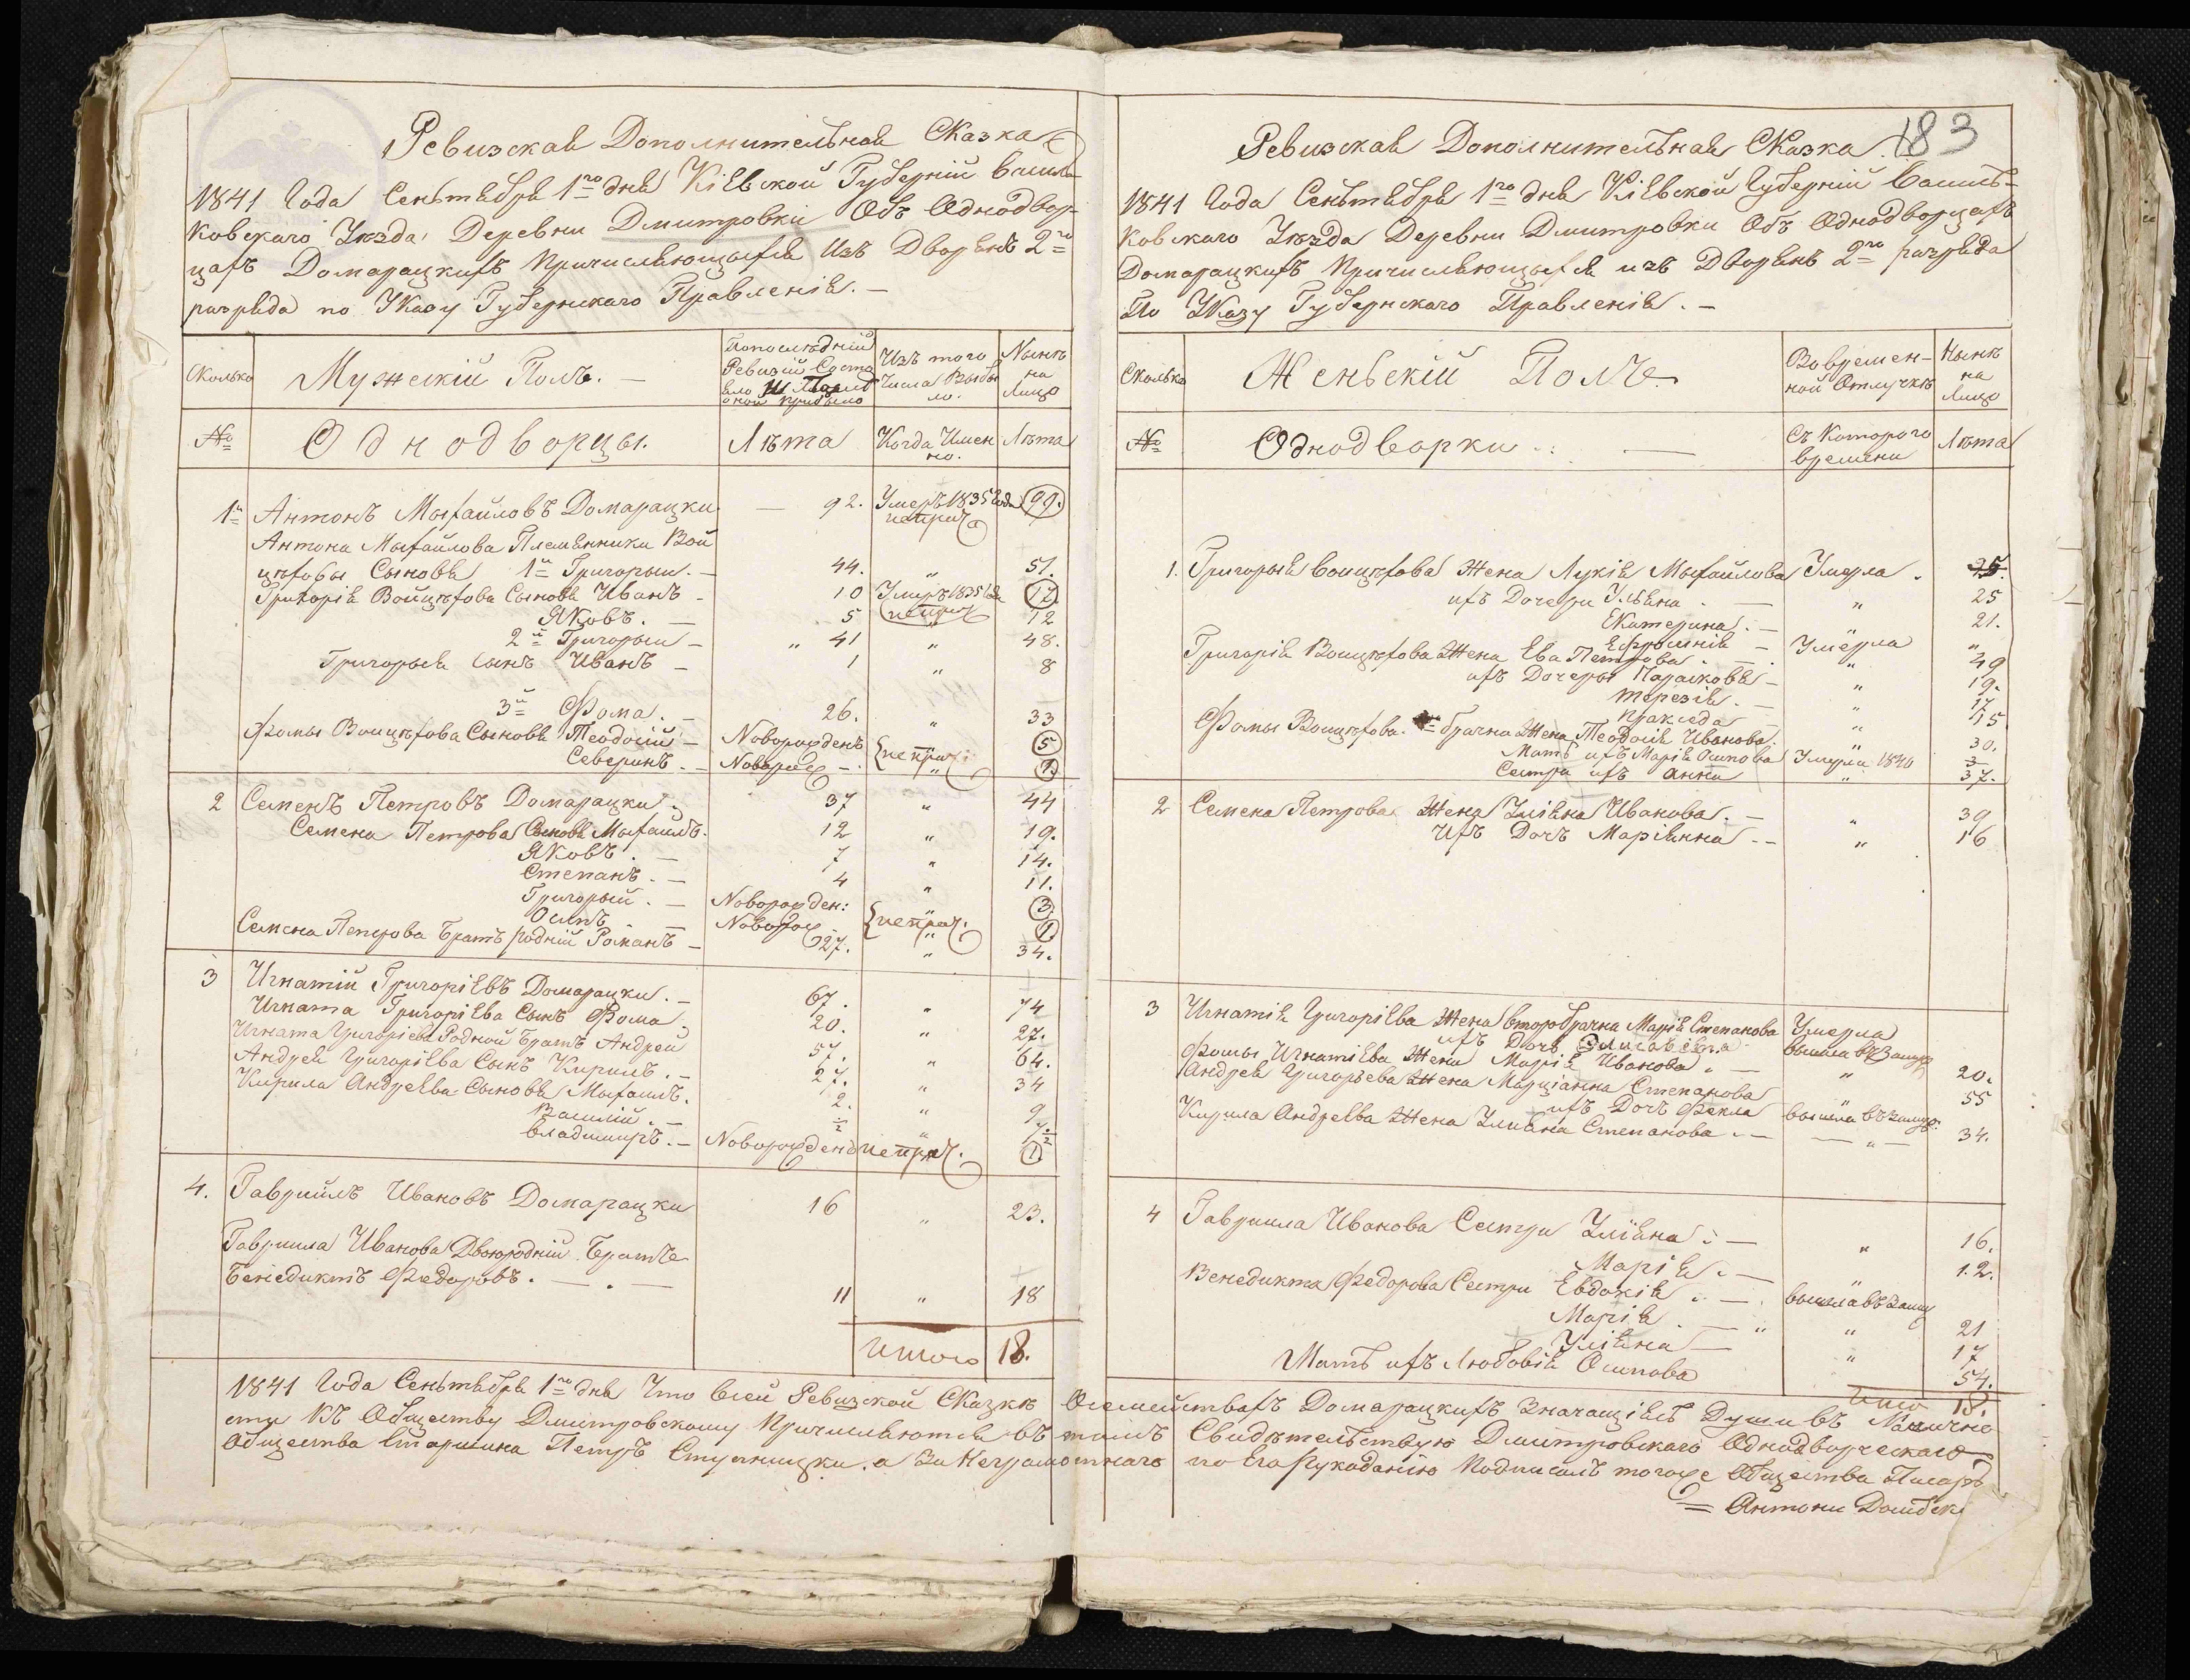 Ревизская Дополнительная Сказка
1841 Года Сеньтября 1го дня Кіевской Губерніи Василь-
ковскаго Уѣзда Деревни Дмитровки Объ Однодвор-
цахъ Домарацкихъ причисляющихся Изъ Дворянъ 2го
разряда по Указу Губернскаго Правленія. —
Сколько
Мужескій Полъ. —
Изъ того
Числа Выбы
ло.
Нынѣ
на
Лицо
№
Однодворцы.
Лѣта
Когда Имен
но.
Лѣта
1й Антонъ Михайловъ Домарацки — 92. Умеръ 1835 Года 99.
Антона Михайлова Племянники Вой
цѣховы Сыновя 1й Григорыи. — 44. „ 51.
Григорія Войцѣхова Сыновя Иванъ — 10 Умеръ 1835 17
Яковъ. — 5 „ 12
2й Григорыи — „ 41 „ 48.
Григорыя Сынъ Иванъ — 1 „ 8
3й Фома. — 26. „ 33
Фомы Воицѣхова Сыновя Теодосій — Новорожденъ 5
Северинъ. — Новорож — 1.
2 Семенъ Петровъ Домарацки. 37 „ 44
Семена Петрова Сыновя Михаилъ. 12 „ 19.
Яковъ. — 7 „ 14.
Степанъ. — 4 „ 11.
Григорый. — Новорожден: „ 3
Осипъ. — Новорож „ 1
Семена Петрова Братъ родній Романъ — 27. „ 34.
3 Игнатій Григоріевъ Домарацки. — 67. „ 74
Игната Григоріева Сынъ Фома. 20. „ 27.
Игната Григоріева Родной Братъ Андрей 57. „ 64.
Андрея Григоріева Сынъ Кирилъ. — 27. „ 34
Кирила Андреева Сыновя Михаилъ. 2. „ 9
Василій. —
Владимиръ. — Новорожденъ 1.
4. Гаврыилъ Ивановъ Домарацки 16 „ 23.
Гавриила Иванова Двоюродній Братъ
Бенедиктъ Федоровъ. — . — 11 „ 18
Итого 18.
183
Ревизская Дополнительная Сказка
1841 Года Сеньтября 1го дня Кіевской Губерніи Василь-
ковскаго Уѣзда Деревни Дмитровки Объ Однодворцахъ
Домарацкихъ причисляющихся изъ Дворянъ 2го разряда
По Указу Губернскаго Правленія. —
Сколько
Женьскій Полъ. —
Вовремен-
ной Отлучкѣ
Нынѣ
на
Лицо
№
Однодворки
Съ Котораго
времени
Лѣта
1. Григорыя Воицѣхова Жена Лукія Михайлова Умерла.
ихъ Дочери Уліяна. — „ 25
Екатерина. — „ 21.
Ефросинія — Умерла „
Григорія Воицѣхова Жена Ева Петрова. — „ 49
ихъ Дочери Парасковя — „ 19.
Терезія. — „ 17
Праксѣда — „ 15
Фомы Воицѣхова Жена Теодосія Иванова. „ 30.
Мать ихъ Марія Осипова Умерла 1840
Сестра ихъ Анна „ 37.
2 Семена Петрова Жена Уліяна Иванова. — „ 39
Ихъ Дочъ Маріянна. — „ 16
3 Игнатія Григоріева Жена второбрачна Марія Степанова Умерла
ихъ Дочъ Элисавета вышла въ Замуж
Фомы Игнатіева Жена Марія Иванова. — „ 20.
Андрея Григорьева Жена Марціанна Степанова „ 55
ихъ Дочъ Фекла вышла въ Замуж.
Кирила Андреева Жена Улиана Степанова. — „ 34.
4 Гавриила Иванова Сестри Уліяна. — „ 16.
Марія. — „ 12.
Бенедикта Федорова Сестри Евдокія. — вышла въ Замуж
Марія. — „ „ 21
Уліяна — „ 17
Мать ихъ Любовія Осипова 54.
Итого 18.
1841 Года Сеньтября 1го дня Что всей Ревизской Сказкѣ Осемействахъ Домарацкихъ Значащіесь Души въ Налично
сти Къ Обществу Дмитровскому Причисляются въ томъ Свидѣтельствую Дмитровскаго Однодворческаго
Общества Старшина Петръ Ступницки, а За Неграмотнаго по Его Рукоданію Подписалъ тогоже Общества Писарь
Антони